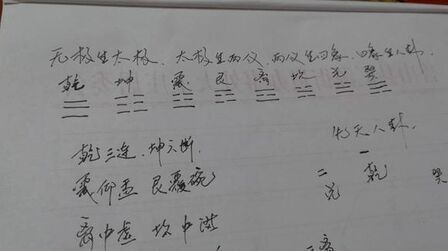 无极生太极、太极生两仪、两仪生四象、四象生八卦。
乾 坤 震 艮 离 坎 兑 巽
☰ ☷ ☳ ☶ ☲ ☵ ☱ ☴
先天八卦.
乾三连.坤六断 一
震仰盂 艮覆碗 二 乾
兑 巽
离中虚 坎中满
三 离